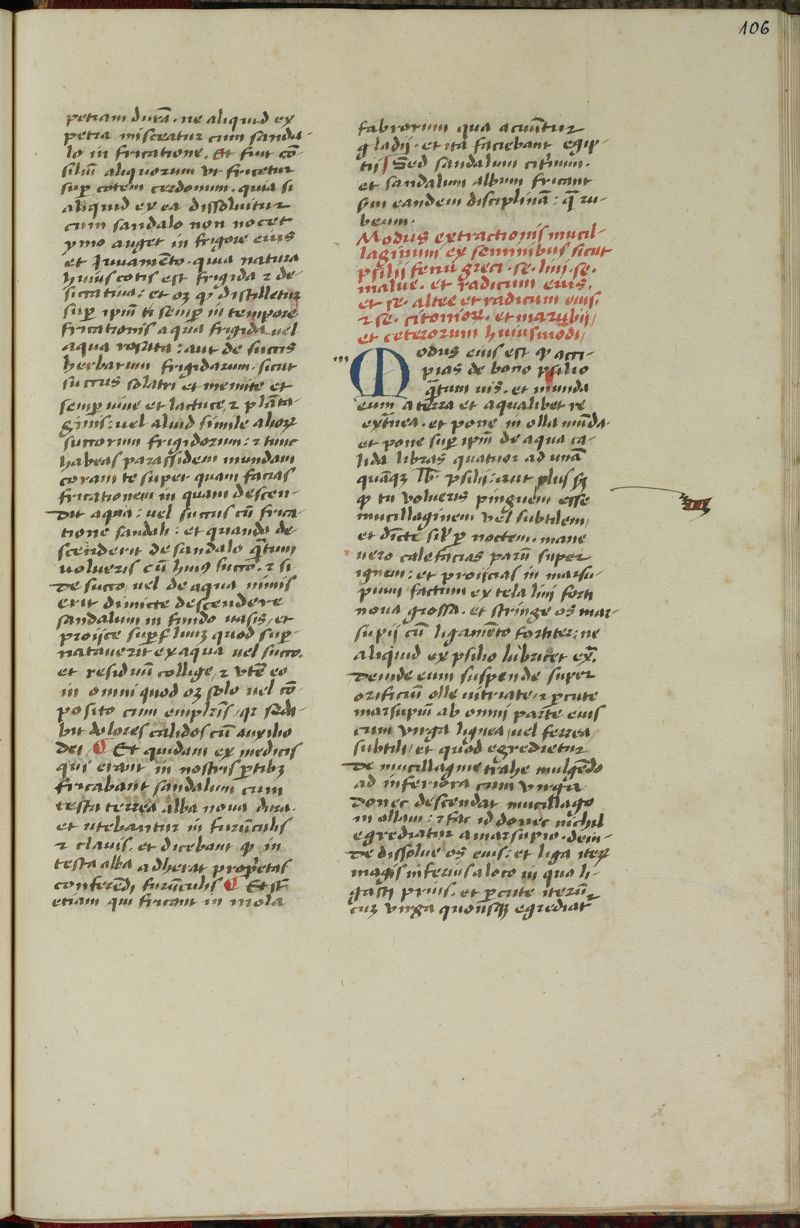 106
petiam durā. ne aliquid ex
petia misceatur cum sanda-
lo in fricatione. Et fiut cō-
siliū aliquorum vt fricetur
sup cotem cerdonum. quia si
aliquid ex ea dissoluitur
cum sandalo non nocet
ymo auget in frigore eius
et iuuamēto. quia natura
huius cotis est frigida ⁊ de-
siccatiua: et oꝫ qͥ distilletur
sup ipm ti semp in tempore
fricationis aqua frigida uel
aqua rosata: aut de succis
herbarum frigidarum. sicut
succus solatri et memite et
semp uiue et lactuce, ⁊ plāta-
ginis: uel aliud simile alioꝝ
succorum frigidorum: ⁊ tunc
habeas parassidem mundam
coram te super quam facias
fricationem in quam descen-
dit aqua: uel succus cū frica-
tione sandali: et quando de-
scenderit de sandalo q̄tum
uolueris cū huiꝰ succo. ⁊ si
de succo, uel de aqua nimis
erit dimicte descendere
sandalum in fundo uasis, et
proijce supfluuꝫ quod sup-
natauerit ex aqua uel succo.
et residuū collige, ⁊ vtē eo
in omni quod oꝫ solo uel cō-
posito cum emplr̄is, qr seda-
bit dolores calidos cū auxilio
dei, ¶ Et quidam ex medicis
qui erant in nostris ꝑtibꝫ
fricabant sandalum cum
testa terrea alba noua dura.
et utebantur in furūculis
⁊ clauis. et dicebant ꝙ in
testa alba adherat propetas
conferēdi furūculis ¶ Et st̄
etiam qui fricant in mola
fabrorum qua acuūtur
gladij. et ita faciebant egip-
tij Sed sandalum citrinum.
et sandalum album fricant
sm eandem disciplinā: q̄ ru-
beum.
Modus extractionis mucil-
laginum ex seminibus sicut
psilij fenu greci. se. lini. se.
malue. et radicum eius.
et se. altee et radicum eius.
⁊ se. citonioꝝ. et marubij,
et ceterorum huiusmodi,
m
Modus eius est ꝙ acci-
pias de bono psilio
q̄tum uis. et munda
eum a terra et a qualibet re
extnea. et pone in olla mūda.
et pone sup ipm de aqua ca-
lida libras quatuor ad unā
quāqꝫ lb. psilij: aut plus sꝫ
ꝙ tu volueris pinguem esse
mucillaginem vel subtilem,
et dicte sil ꝑ noctem. mane
uero calefacias parū super
ignem: et proijcias in marsu-
pium factum ex tela lini forti
noua grossa. et stringe os mar-
supij cū ligamēto fortiter: ne
aliquid ex psilio lubricet ex.
deinde eum suspende super
orificiū olle uitriate, ⁊ ꝑcute
marsupiū ab omni parte eius
cum virga lignea, uel ferrea,
subtili, et quod egredietur
de mucillagine trahe mulgēdo
ad inferiora cum virga
donec descendat mucillago
in ollam: ⁊ fac id donec nichil
egrediatur a marsupio. dein-
de dissolue os eius: et liga iteꝝ
magis inferius a loco in quo li-
gasti prius. et ꝑcute iterū
cuꝫ virga quousqꝫ egrediat